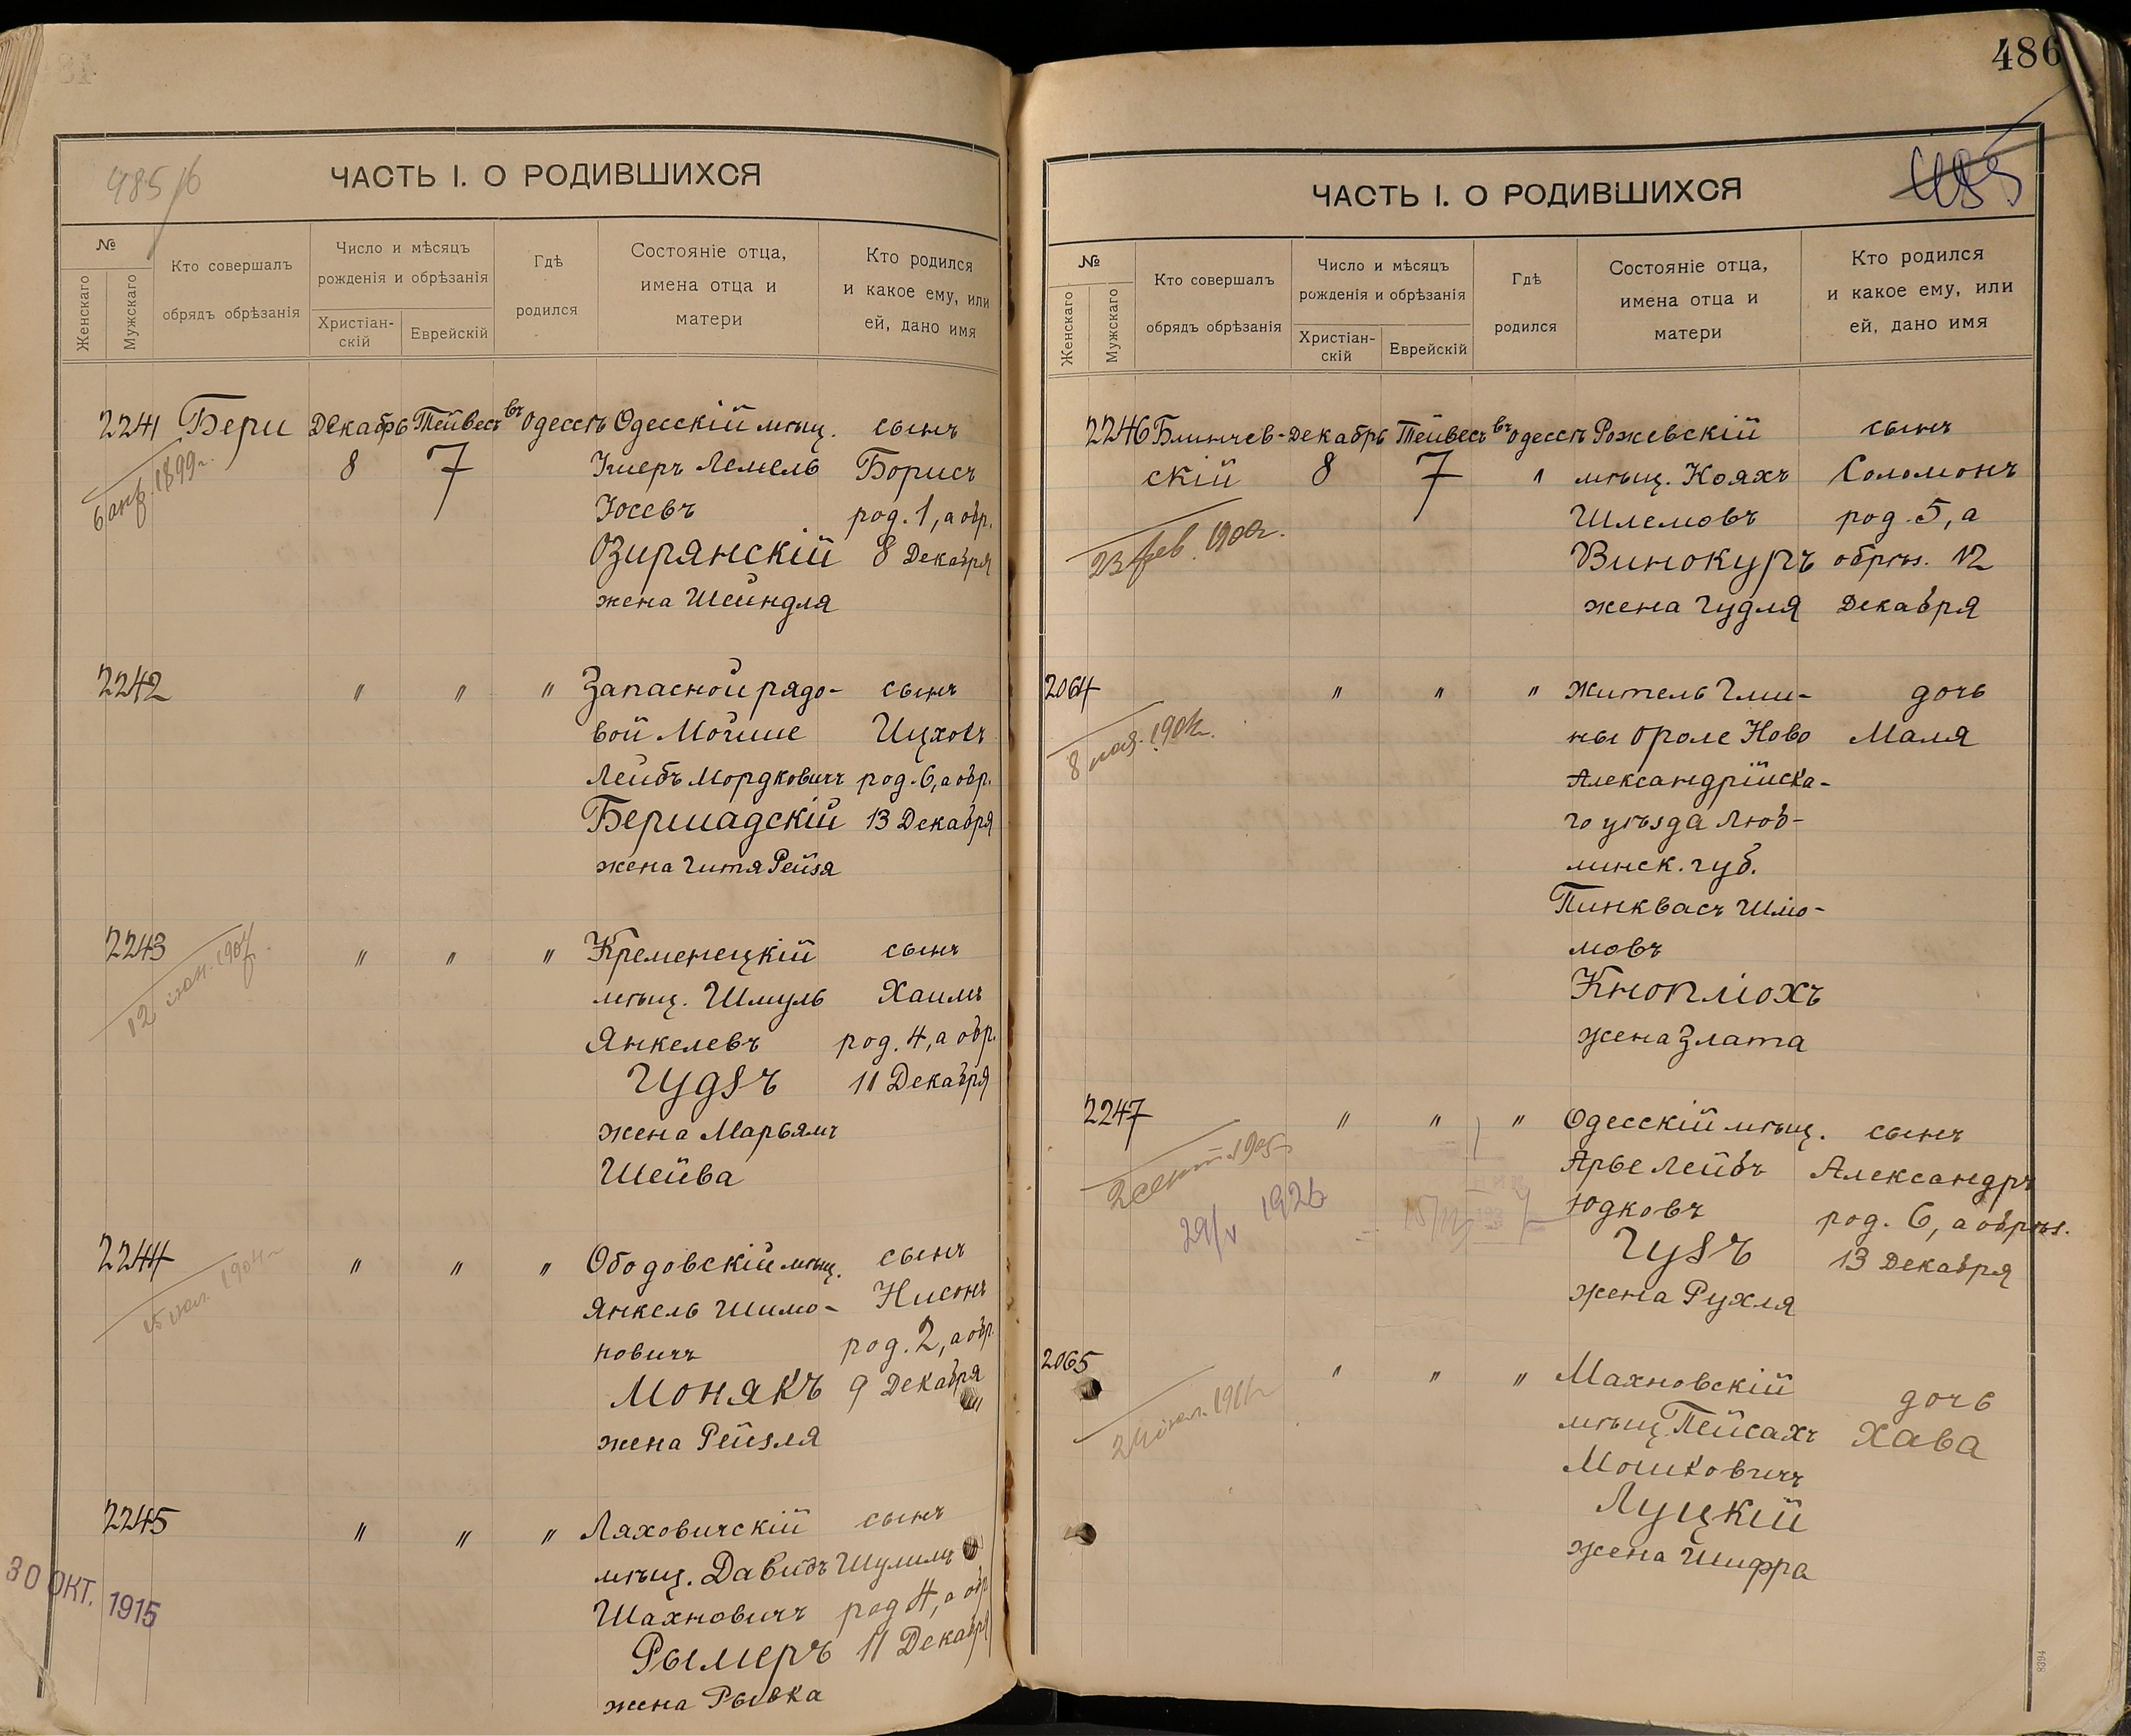 486
485/6
ЧАСТЬ I. О РОДИВШИХСЯ
№
Женскаго
Мужскаго
Кто совершалъ
обрядъ обрѣзанія
Число и мѣсяцъ
рожденія и обрѣзанія
Христіан-
скій
Еврейскій
Гдѣ
родился
Состояніе отца,
имена отца и
матери
Кто родился
и какое ему, или
ей, дано имя
2241 Бери Декабрь Тейвесъ въ Одессѣ Одесскій мѣщ. сынъ
8 7 Ушеръ Лемель Борисъ
6 янв. 1899 г.
Іосевъ род. 1, а обр.
Озирянскій 8 Декабря
жена Шейндля
2242 " " " Запасной рядо- сынъ
вой Мойше Ицхокъ
Лейбъ Мордковичъ род. 6, а обр.
Бершадскій 13 Декабря
жена Гитя Рейзя
2243 " " " Кременецкій сынъ
мѣщ. Шмуль Хаимъ
Янкелевъ род. 4, а обр.
Гудзъ 11 Декабря
жена Марьямъ
Шейва
2244 " " " Ободовскій мѣщ. сынъ
Янкель Шимо- Нисонъ
новичъ род. 2, а обр.
Монякъ 9 Декабря
жена Рейзля
2245 " " " Ляховичскій сынъ
мѣщ. Давидъ Шулимъ
Шахновичъ род 4, а обр
Рымеръ 11 Декабря
жена Рывка
30 ОКТ. 1915
ЧАСТЬ I. О РОДИВШИХСЯ
485
№
Женскаго
Мужскаго
Кто совершалъ
обрядъ обрѣзанія
Число и мѣсяцъ
рожденія и обрѣзанія
Христіан-
скій
Еврейскій
Гдѣ
родился
Состояніе отца,
имена отца и
матери
Кто родился
и какое ему, или
ей, дано имя
2246 Блинчев- Декабрь Тейвесъ въ Одессѣ Рожевскій сынъ
скій 8 7 " мѣщ. Нояхъ Соломонъ
Шлемовъ род. 5, а
23 фев.
Винокуръ обрѣз. 12
жена Гудля Декабря
2064 " " " Житель Гми- дочь
ны Ополе Ново Маля
Александрійска-
го уѣзда Люб-
линск. губ.
Пинквасъ Шлио-
мовъ
Кнопліохъ
жена Злата
2247 " " " Одесскій мѣщ. сынъ
Арье Лейбъ Александръ
Юдковъ род. 6, а обрѣз.
29/V 1926
Гузъ 13 Декабря
жена Рухля
2065 " " " Махновскій дочь
мѣщ. Пейсахъ Хава
Мошковичъ
Луцкій
жена Шифра
8394